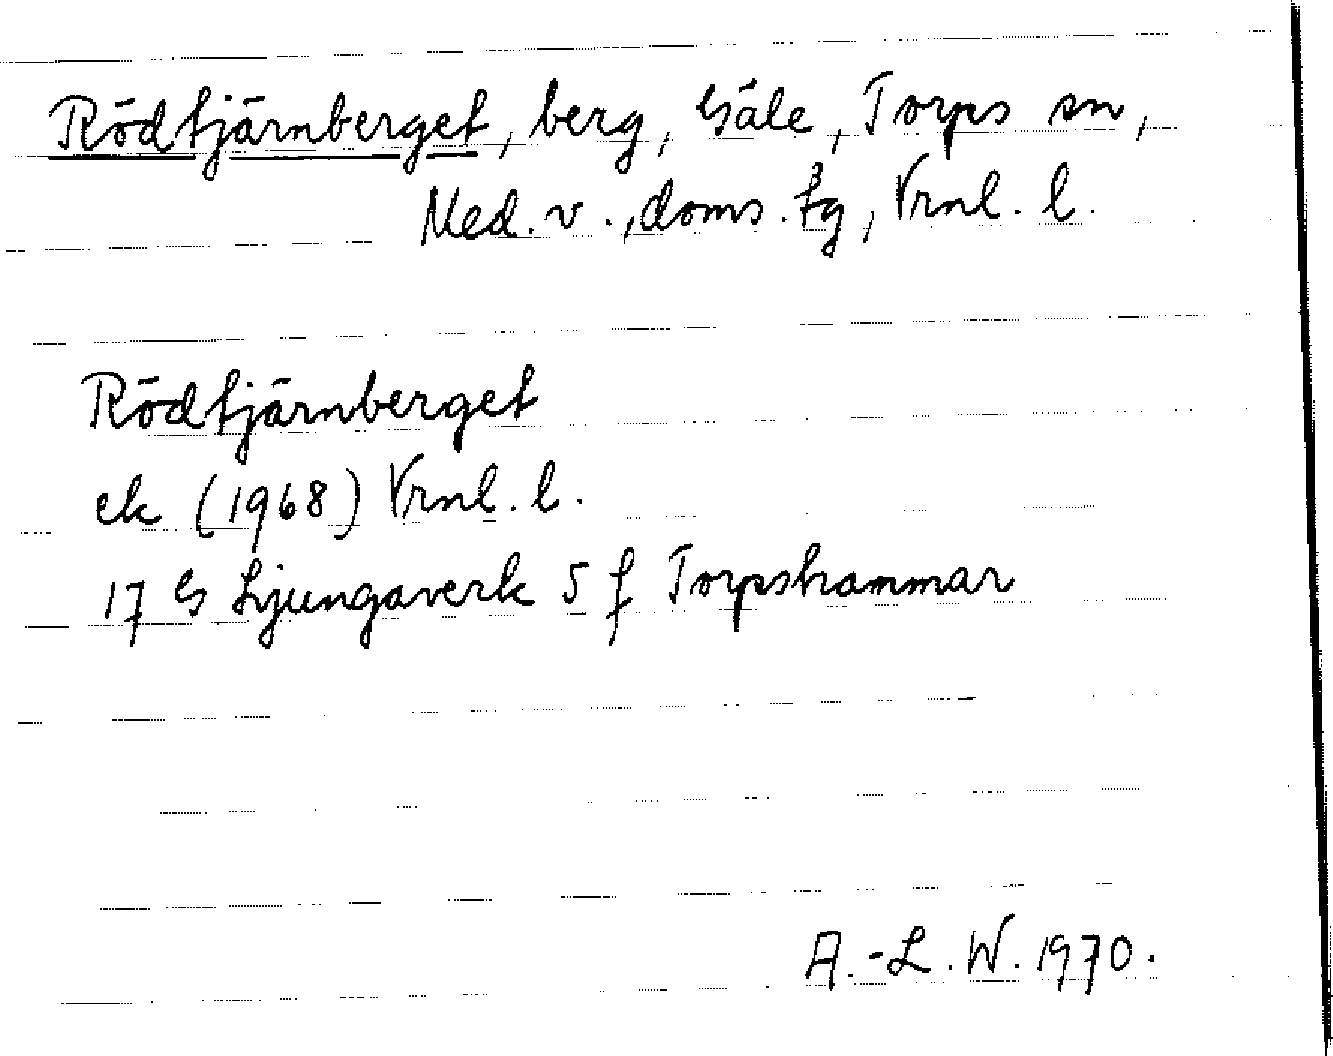 Rödtjärnberget, berg, Gåle, Torps sn,
Med. v., doms. tg, Vrnl. l.
Rödtjärnberget
ek (1968) Vrnl. l.
17 G Ljungaverk 5 f Torpshammar
A.-L. W. 1970.